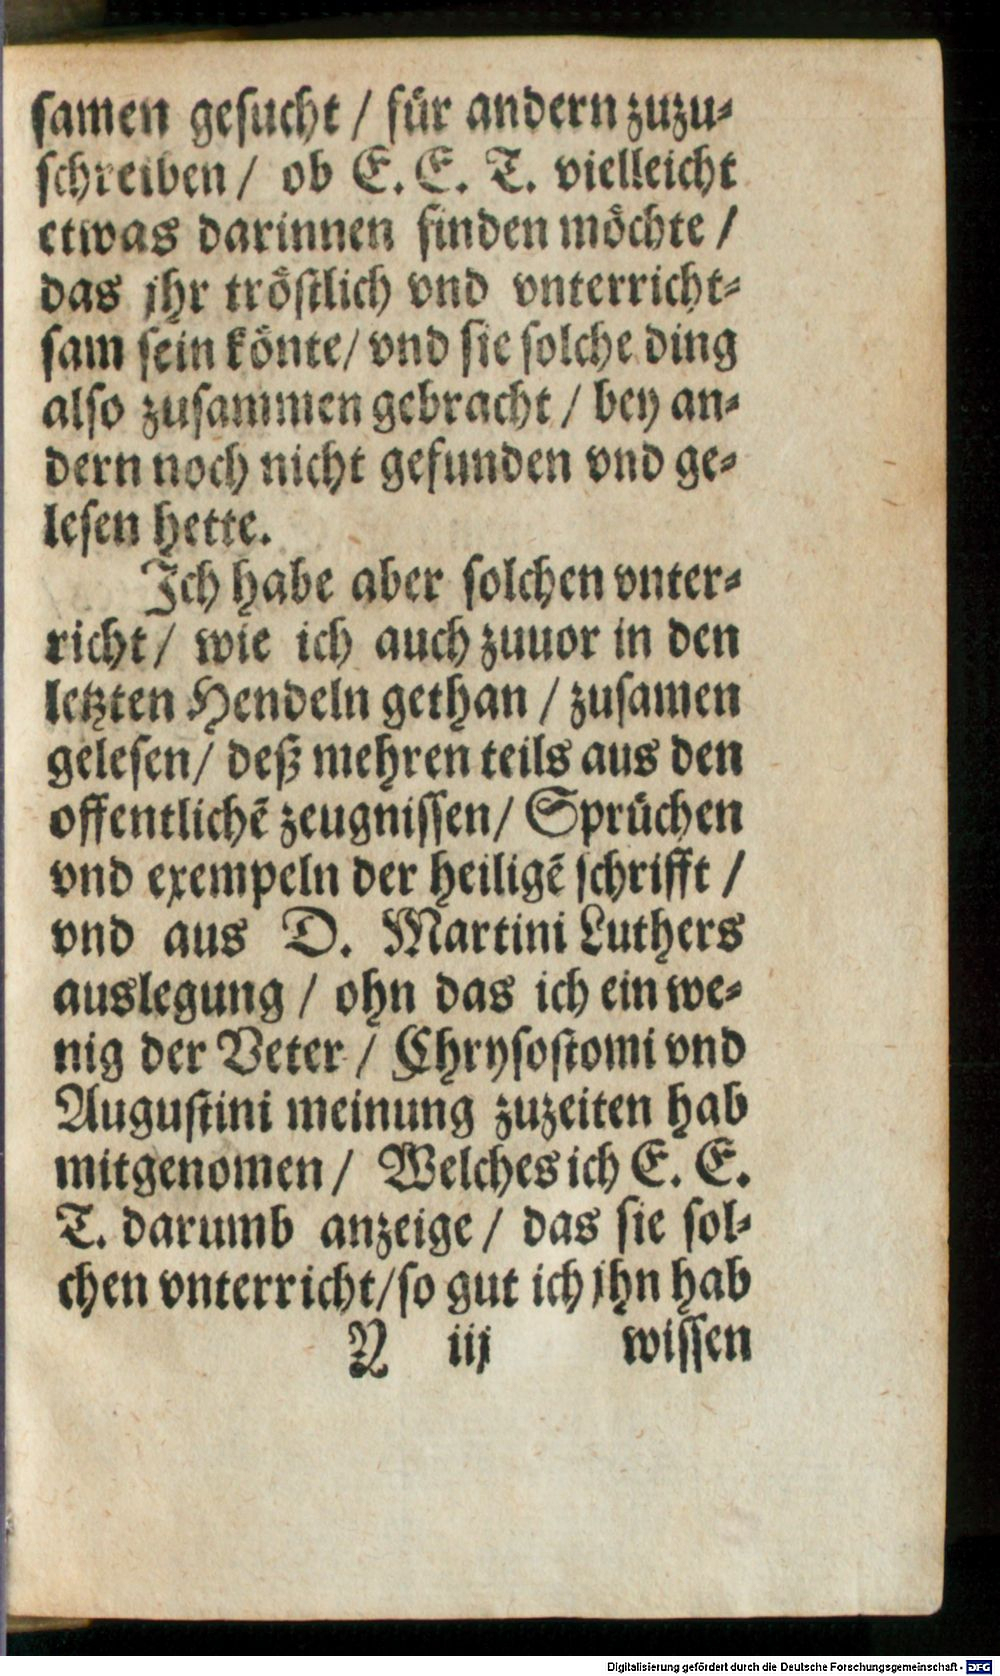 samen gesucht / für andern zuzu-
schreiben / ob E. E. T. vielleicht
etwas darinnen finden möchte /
das jhr tröstlich vnd vnterricht-
sam sein könte / vnd sie solche ding
also zusammen gebracht / bey an-
dern noch nicht gefunden vnd ge-
lesen hette.
Ich habe aber solchen vnter-
richt / wie ich auch zuuor in den
letzten Hendeln gethan / zusamen
gelesen / deß mehren teils aus den
offentlichẽ zeugnissen / Sprüchen
vnd exempeln der heiligẽ schrifft /
vnd aus D. Martini Luthers
auslegung / ohn das ich ein we-
nig der Veter / Chrysostomi vnd
Augustini meinung zuzeiten hab
mitgenomen / Welches ich E. E.
T. darumb anzeige / das sie sol-
chen vnterricht / so gut ich jhn hab
N iij wissen
Digitalisierung gefördert durch die Deutsche Forschungsgemeinschaft - DFG